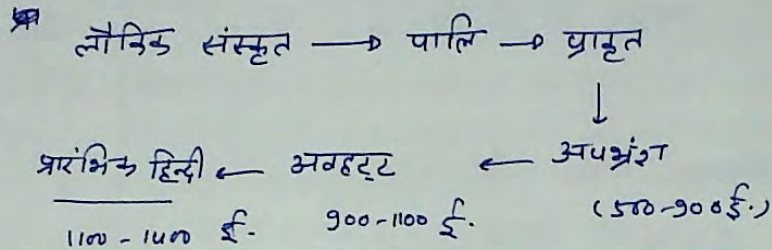 लौकिक संस्कृत → पालि → प्राकृत
↓
प्रारंभिक हिन्दी ← अवहट्ट ← अपभ्रंश
1100 - 1400 ई. 900-1100 ई. (500-900 ई.)